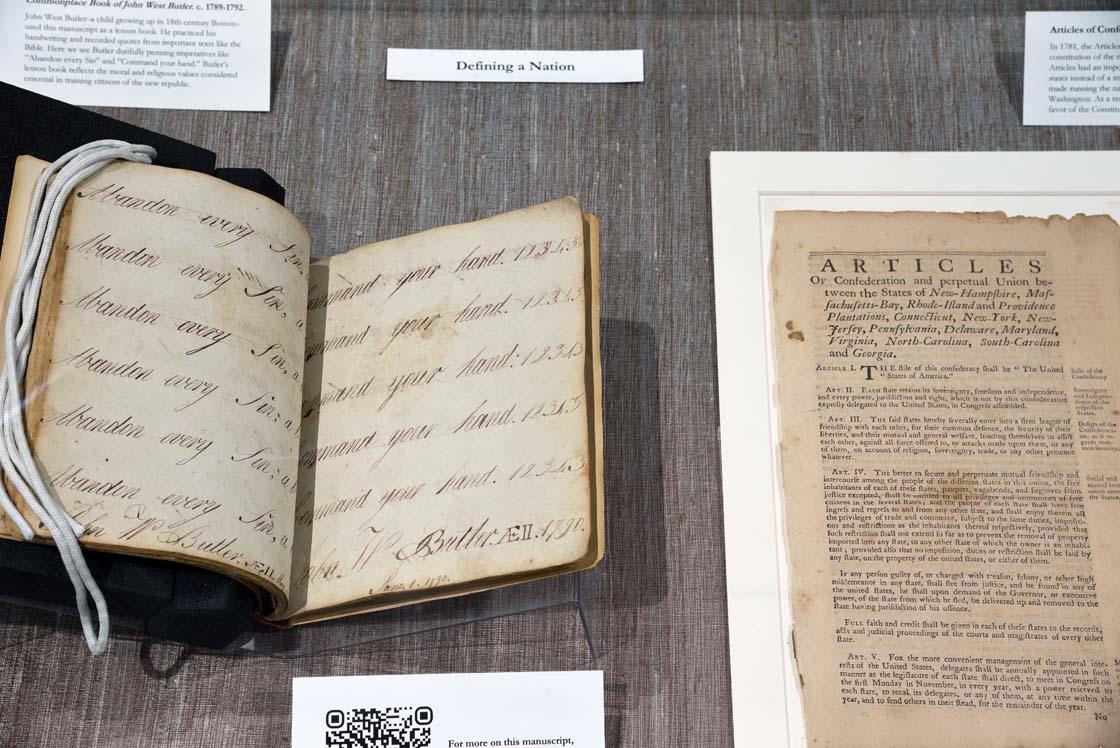 Commonplace Book of John West Butler. c. 1789-1792.
John West Butler–a child growing up in 18th-century Boston–
used this manuscript as a lesson book. He practiced his
handwriting and recorded quotes from important texts like the
Bible. Here we see Butler dutifully penning imperatives like
“Abandon every Sin” and “Command your hand.” Butler’s
lesson book reflects the moral and religious values considered
essential in training citizens of the new republic.
Defining a Nation
Articles of Conf
In 1781, the Articles
constitution of the
Articles had an
states instead of a
made running the
Washington. As a
favor of the Constit
Abandon every Sin, a
Abandon every Sin, a
Abandon every Sin, a
Abandon every Sin, a
Abandon every Sin, a
Abandon every Sin, a
John W Butler, Æ11.
ommand your hand. 12345
ommand your hand. 12345
ommand your hand. 12345
ommand your hand. 12345
ommand your hand. 12345
John W Butler. Æ11. 1790.
June 1. 1790.
ARTICLES
Of Confederation and perpetual Union be-
tween the States of New-Hampſhire, Maſ-
ſachuſetts-Bay, Rhode-Iſland and Providence
Plantations, Connecticut, New-York, New-
Jerſey, Pennſylvania, Delaware, Maryland,
Virginia, North-Carolina, South-Carolina
and Georgia.
Article I. THE ſtile of this confederacy ſhall be “The United
“States of America.”
Stile of the
Confederacy
Art. II. Each ſtate retains its ſovereignty, freedom and independence,
and every power, juriſdiction and right, which is not by this confederation
expreſly delegated to the United States, in Congreſs aſſembled.
Sovereignty
and Indepen-
dence of the
reſpective
States.
Art. III. The ſaid ſtates hereby ſeverally enter into a firm league of
friendſhip with each other, for their common defence, the ſecurity of their
liberties, and their mutual and general welfare, binding themſelves to aſſiſt
each other, againſt all force offered to, or attacks made upon them, or any
of them, on account of religion, ſovereignty, trade, or any other pretence
whatever.
Deſign of the
Confederati-
on, as it re-
gards com-
mon ſecurity,
Art. IV. The better to ſecure and perpetuate mutual friendſhip and
intercourſe among the people of the different ſtates in this union, the free
inhabitants of each of theſe ſtates, paupers, vagabonds, and fugitives from
juſtice excepted, ſhall be entitled to all privileges and immunities of free
citizens in the ſeveral ſtates; and the people of each ſtate ſhall have free
ingreſs and regreſs to and from any other ſtate, and ſhall enjoy therein all
the privileges of trade and commerce, ſubject to the ſame duties, impoſiti-
ons and reſtrictions as the inhabitants thereof reſpectively, provided that
ſuch reſtriction ſhall not extend ſo far as to prevent the removal of property
imported into any ſtate, to any other ſtate of which the owner is an inhabi-
tant; provided alſo that no impoſition, duties or reſtriction ſhall be laid by
any ſtate, on the property of the united ſtates, or either of them.
Social and
the States
If any perſon guilty of, or charged with treaſon, felony, or other high
miſdemeanor in any ſtate, ſhall flee from juſtice, and be found in any of
the united ſtates, he ſhall upon demand of the Governor, or executive
power, of the ſtate from which he fled, be delivered up and removed to the
ſtate having juriſdiction of his offence.
Full faith and credit ſhall be given in each of theſe ſtates to the records,
acts and judicial proceedings of the courts and magiſtrates of every other
ſtate.
Art. V. For the more convenient management of the general inte-
reſts of the United States, delegates ſhall be annually appointed in ſuch
manner as the legiſlature of each ſtate ſhall direct, to meet in Congreſs on
the firſt Monday in November, in every year, with a power reſerved to
each ſtate, to recal its delegates, or any of them, at any time within the
year, and to ſend others in their ſtead, for the remainder of the year.
No
For more on this manuscript,